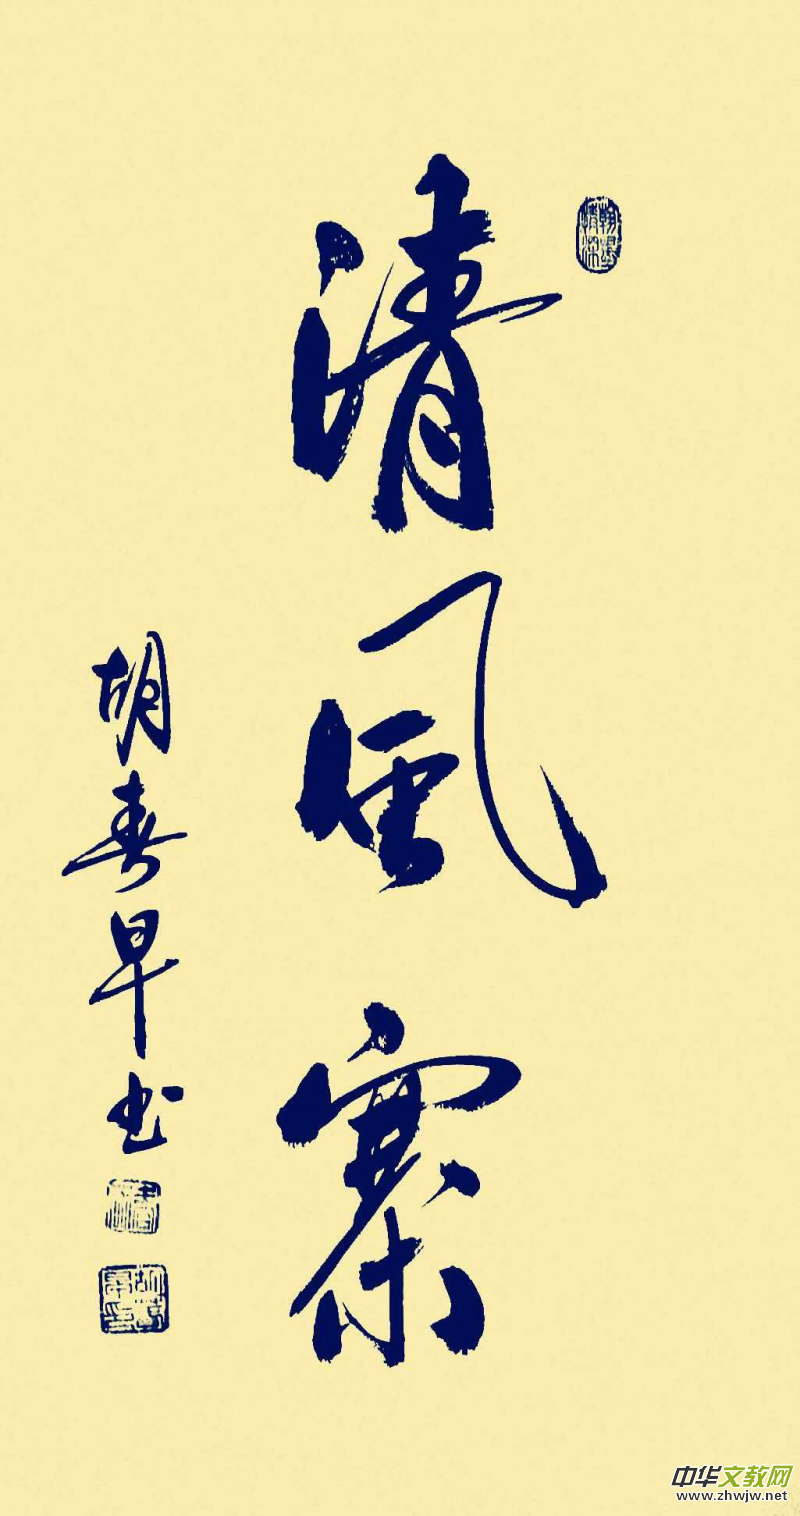 清風寨
胡春早书
中华文教网
www.zhwjw.net